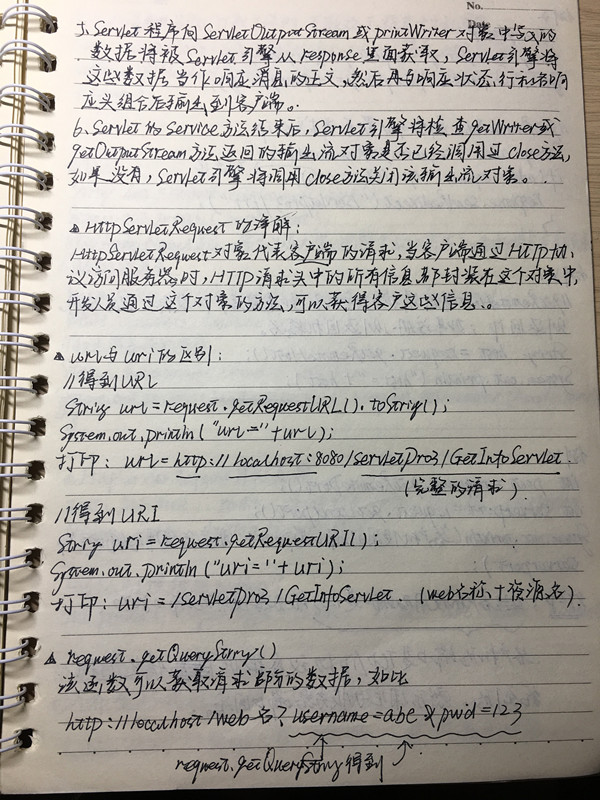 No.
Date
5、Servlet程序向ServletOutputStream或printWriter对象中写入的
数据将被Servlet引擎从response里面获取，Servlet引擎将
这些数据当作响应消息的正文，然后再与响应状态行和各响
应头组合后输出到客户端。
6、Servlet的Service方法结束后，Servlet引擎将检查getWriter或
getOutputStream方法返回的输出流对象是否已经调用过close方法，
如果没有，Servlet引擎将调用close方法关闭该输出流对象。
▲ HttpServletRequest的详解：
HttpServletRequest对象代表客户端的请求，当客户端通过HTTP协
议访问服务器时，HTTP请求头中的所有信息都封装在这个对象中，
开发人员通过这个对象的方法，可以获得客户这些信息。
▲ url与uri的区别：
//得到URL
String url=request.getRequestURL().toString();
System.out.println("url="+url);
打印：url=http://localhost:8080/servletPro3/GetInfoServlet.
(完整的请求)
//得到URI
String uri=request.getRequestURI();
System.out.println("uri="+uri);
打印：uri=/servletPro3/GetInfoServlet. (web名称+资源名).
▲ request.getQueryString()
该函数可以获取请求部分的数据，如比
http://localhost/web名?username=abc&pwd=123
request.getQueryString得到